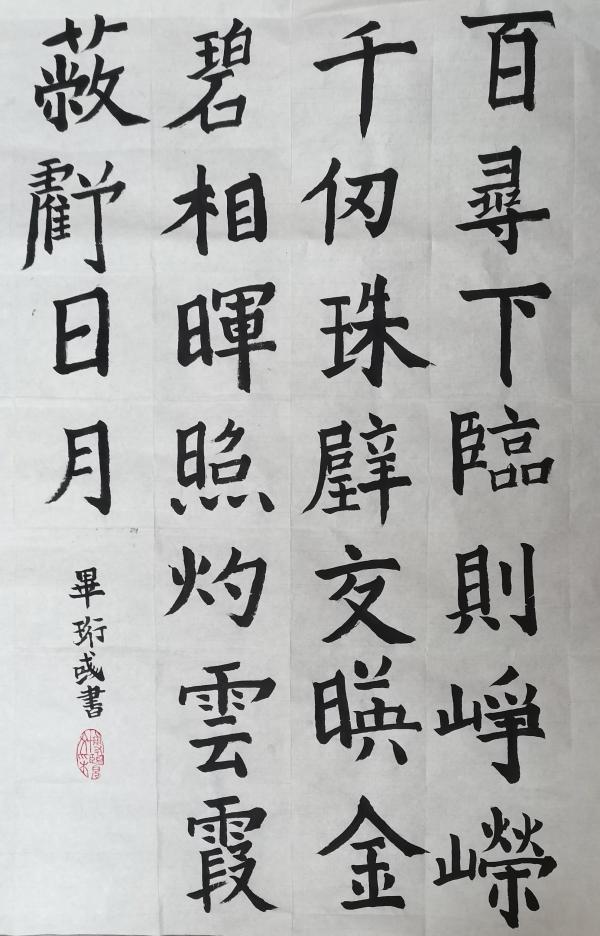 百尋下臨則崢嶸
千仞珠璧交暎金
碧相暉照灼雲霞
蔽虧日月
畢珩彧書